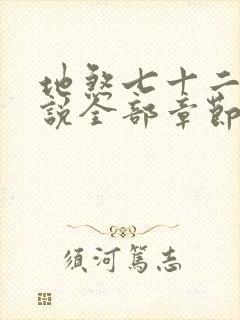 地煞七十二
說全部章節
須河篤志